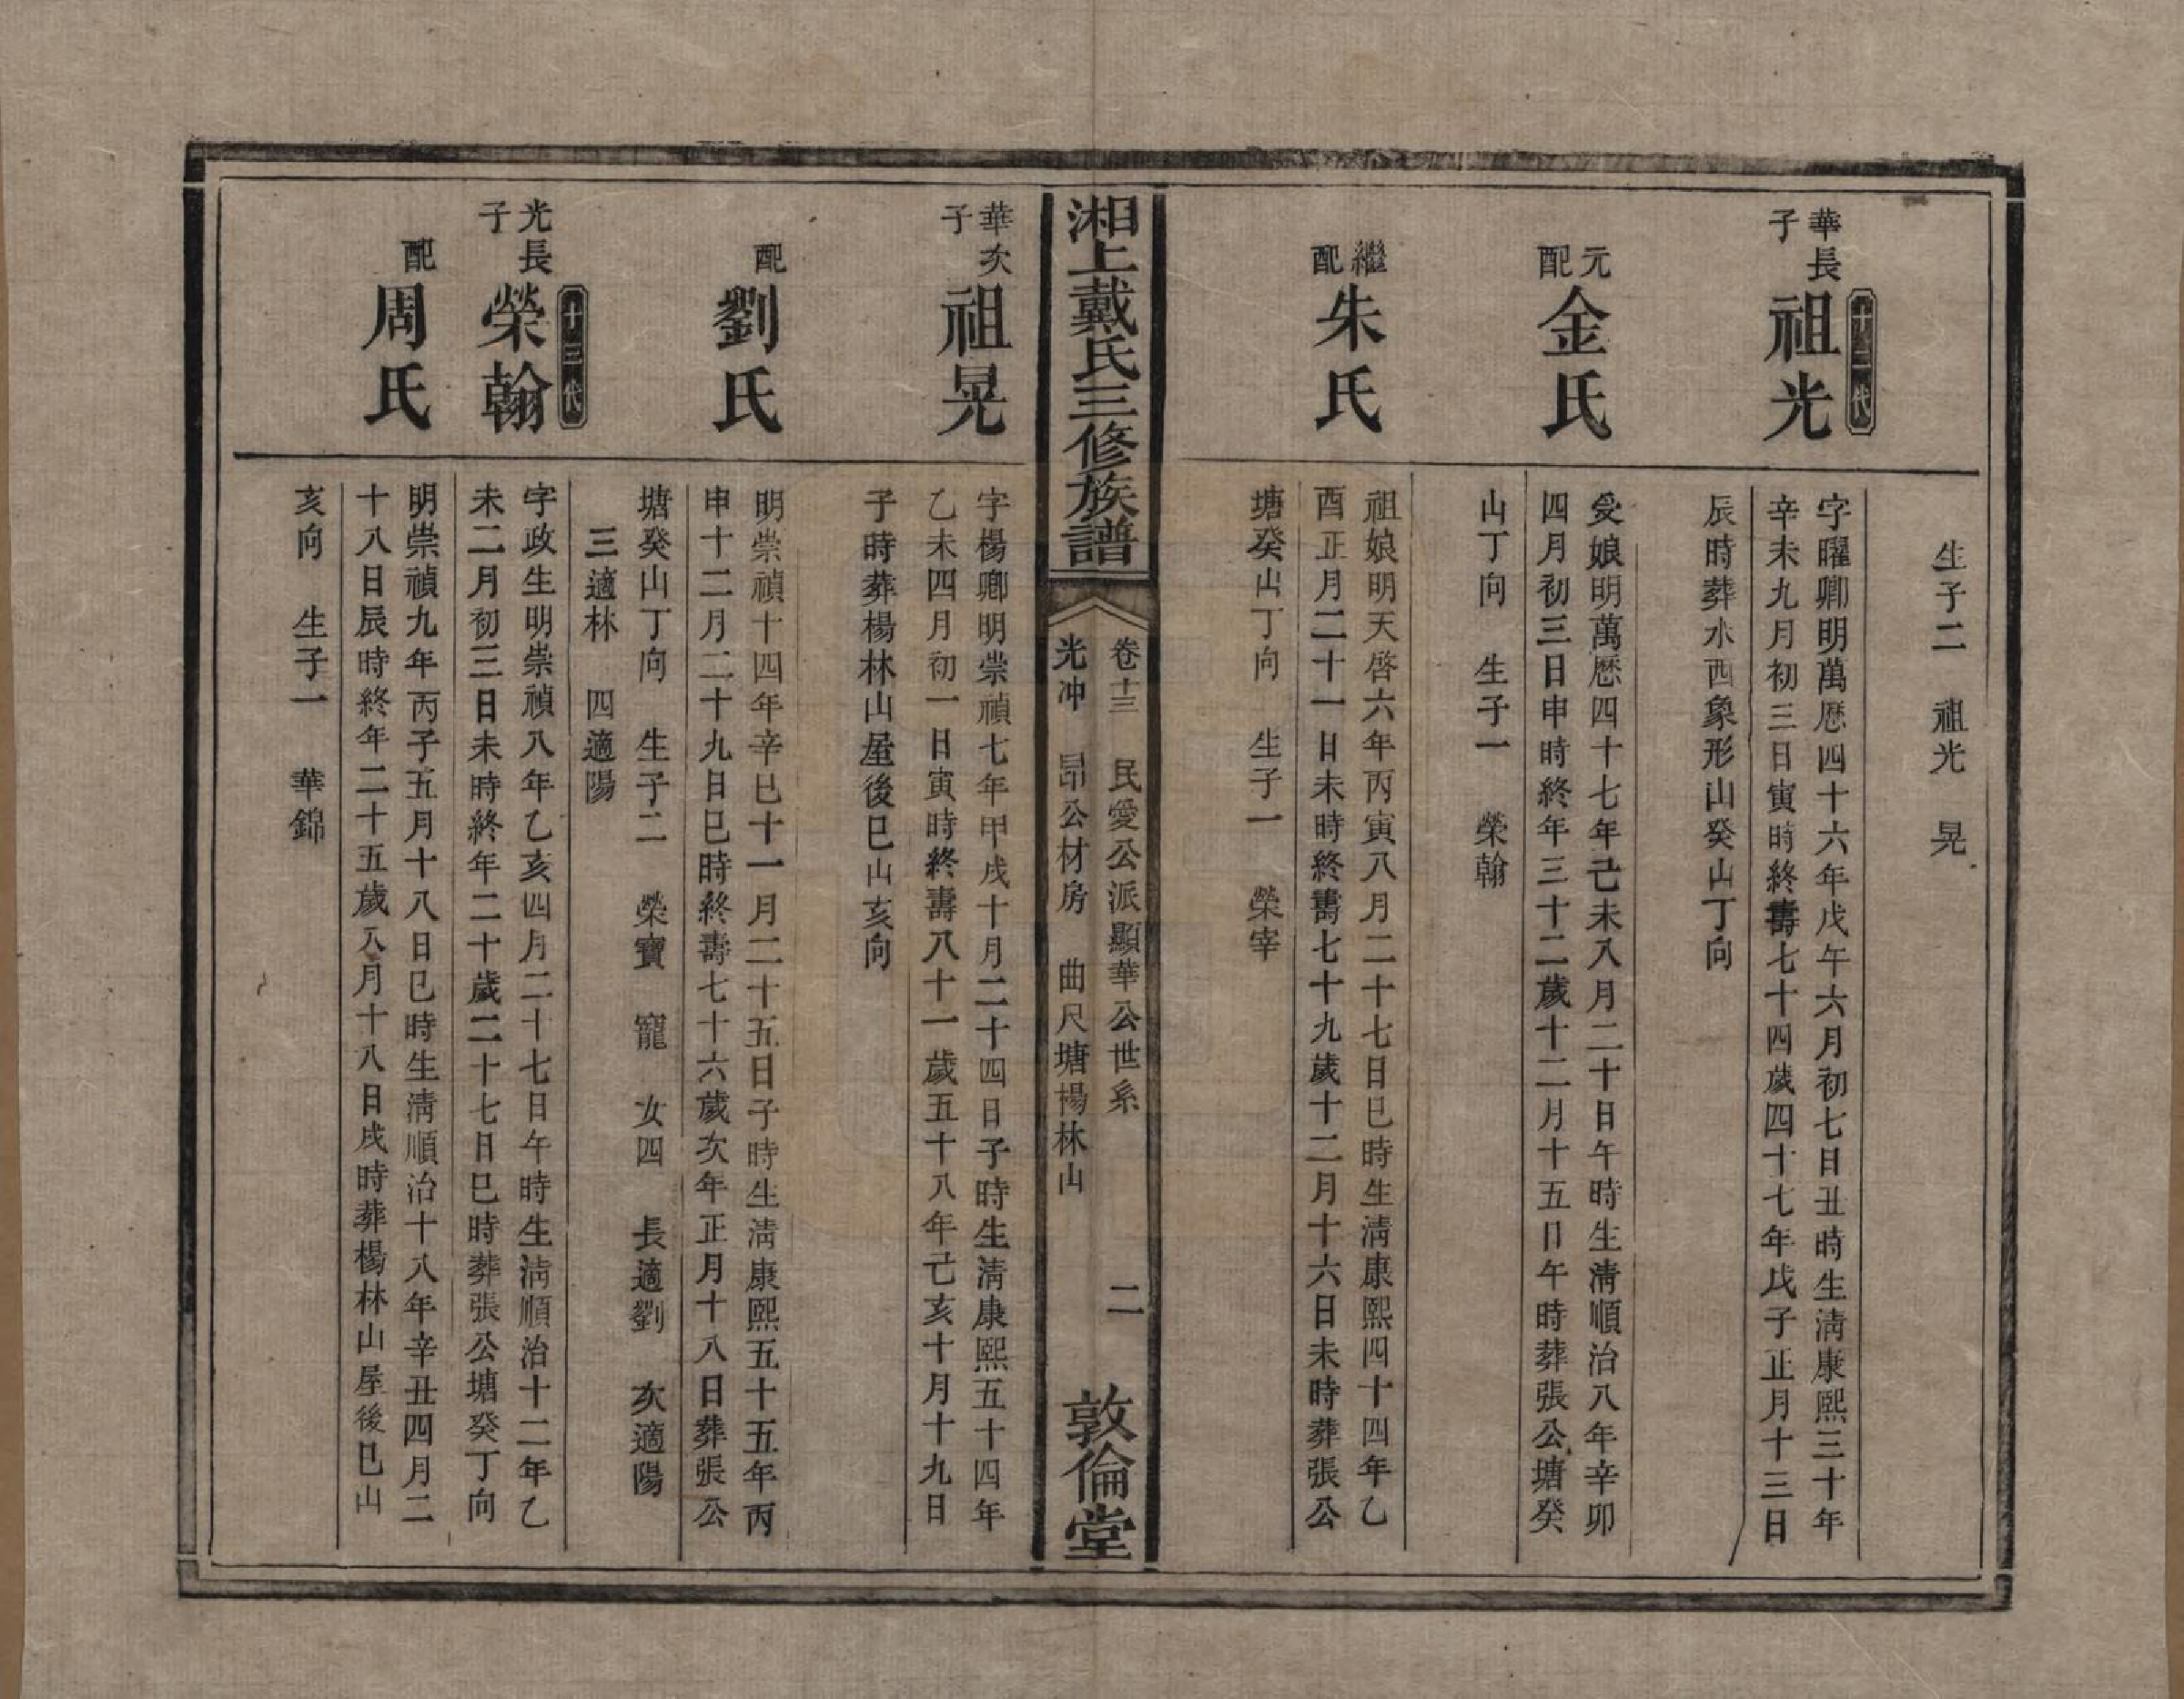 生子二　祖光　晃
十二代
華長子　祖光
字曜卿明萬歷四十六年戊午六月初七日丑時生淸康熙三十年
辛未九月初三日寅時終壽七十四歲四十七年戊子正月十三日
辰時葬水西象形山癸山丁向
元配　金氏
受娘明萬歷四十七年己未八月二十日午時生淸順治八年辛卯
四月初三日申時終年三十二歲十二月十五日午時葬張公塘癸
山丁向　生子一　榮翰
繼配　朱氏
祖娘明天啓六年丙寅八月二十七日巳時生淸康熙四十四年乙
酉正月二十一日未時終壽七十九歲十二月十六日未時葬張公
塘癸山丁向　生子一　榮宰
湘上戴氏三修族譜
卷十三　民愛公派顯華公世系　二
光冲　昂公材房　曲尺塘楊林山
敦倫堂
華次子　祖晃
字楊卿明崇禎七年甲戌十月二十四日子時生淸康熙五十四年
乙未四月初一日寅時終壽八十一歲五十八年己亥十月十九日
子時葬楊林山屋後巳山亥向
配　劉氏
明崇禎十四年辛巳十一月二十五日子時生淸康熙五十五年丙
申十二月二十九日巳時終壽七十六歲次年正月十八日葬張公
塘癸山丁向　生子二　榮寶　寵　女四　長適劉　次適陽
三適林　四適陽
十三代
光長子　榮翰
字政生明崇禎八年乙亥四月二十七日午時生淸順治十二年乙
未二月初三日未時終年二十歲二十七日巳時葬張公塘癸丁向
配　周氏
明崇禎九年丙子五月十八日巳時生淸順治十八年辛丑四月二
十八日辰時終年二十五歲八月十八日戌時葬楊林山屋後巳山
亥向　生子一　華錦